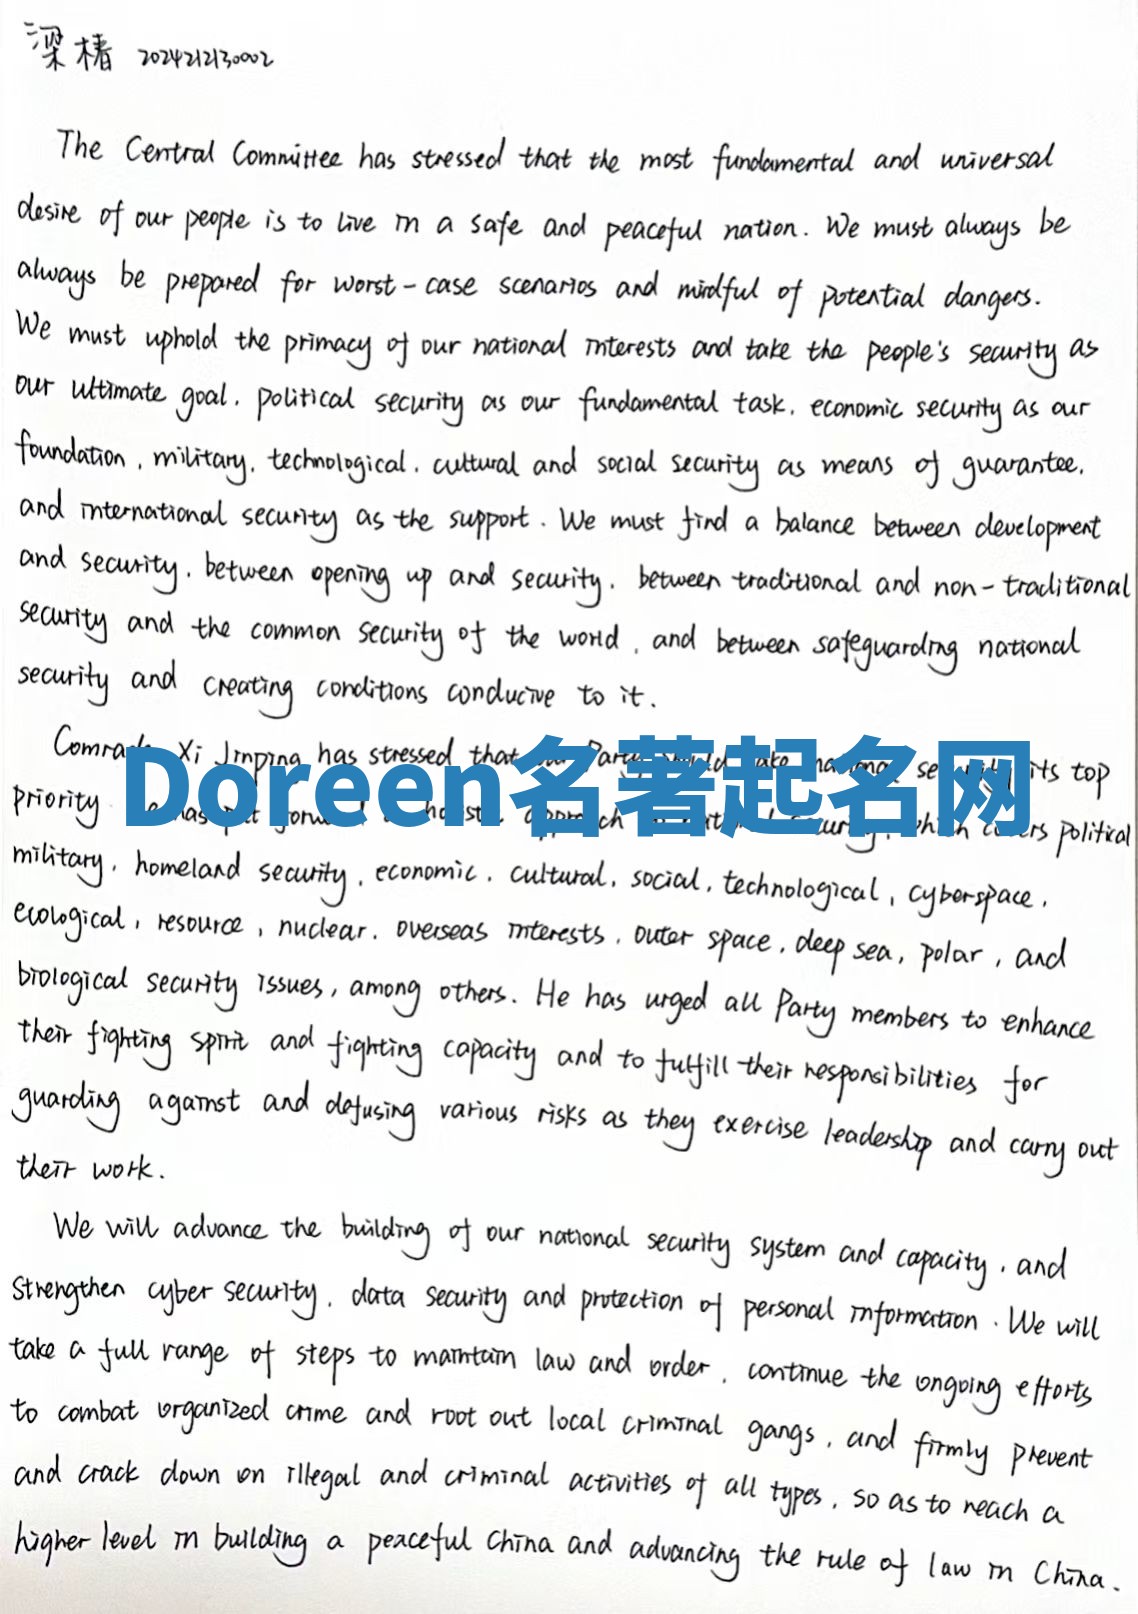 梁椿 2024212130002
The Central Committee has stressed that the most fundamental and universal
desire of our people is to live in a safe and peaceful nation. We must always be
always be prepared for worst-case scenarios and mindful of potential dangers.
We must uphold the primacy of our national interests and take the people's security as
our ultimate goal, political security as our fundamental task, economic security as our
foundation, military, technological, cultural and social security as means of guarantee,
and international security as the support. We must find a balance between development
and security, between opening up and security, between traditional and non-traditional
security and the common security of the world, and between safeguarding national
security and creating conditions conducive to it.
Xi Jinping has stressed that its top
Doreen名著起名网
priority political
military, homeland security, economic, cultural, social, technological, cyberspace,
ecological, resource, nuclear, overseas interests, outer space, deep sea, polar, and
biological security issues, among others. He has urged all Party members to enhance
their fighting spirit and fighting capacity and to fulfill their responsibilities for
guarding against and defusing various risks as they exercise leadership and carry out
their work.
We will advance the building of our national security system and capacity, and
strengthen cyber security, data security and protection of personal information. We will
take a full range of steps to maintain law and order, continue the ongoing efforts
to combat organized crime and root out local criminal gangs, and firmly prevent
and crack down on illegal and criminal activities of all types, so as to reach a
higher level in building a peaceful China and advancing the rule of law in China.